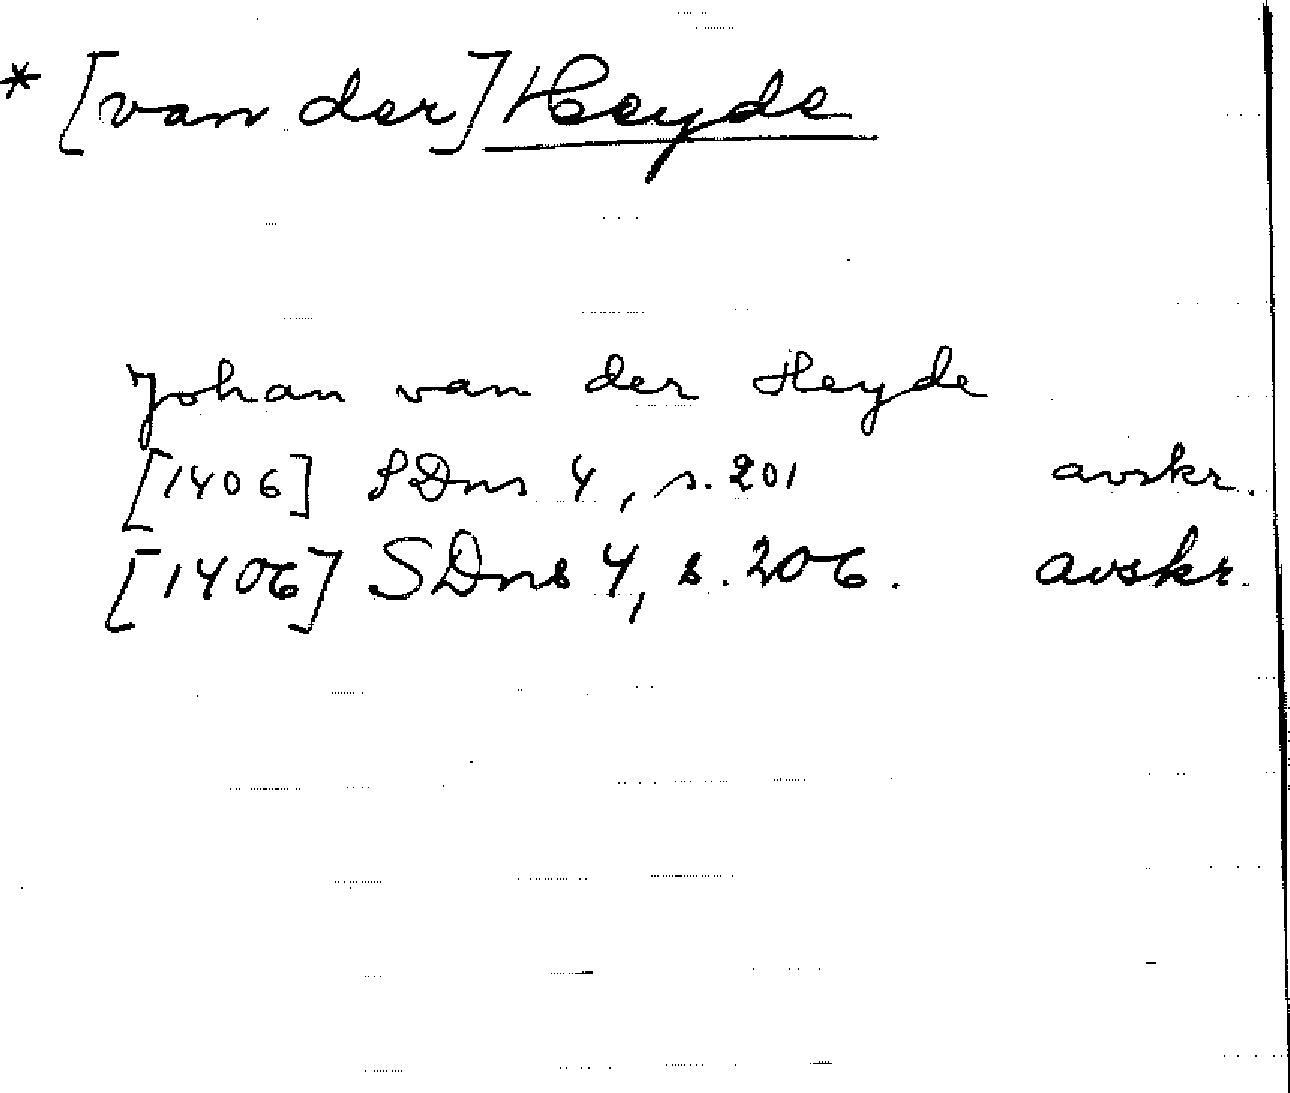 * [van der] Heyde
Johan van der Heyde
[1406] SDns 4, s. 201 avskr.
[1406] SDns 4, s. 206. avskr.